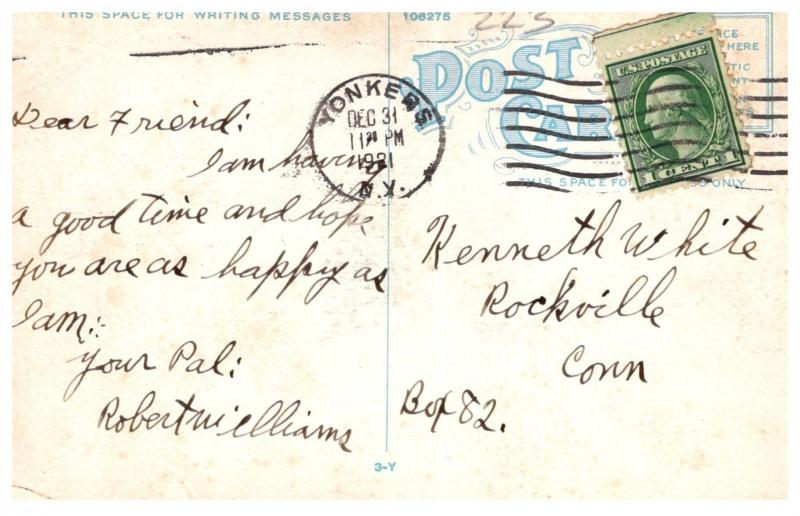 THIS SPACE FOR WRITING MESSAGES
106275
223
POST
CARD
U.S. POSTAGE
1 CENT 1
YONKERS
DEC 31
11 30 PM
1921
N.Y.
THIS SPACE FOR ONLY
Dear Friend:
I am having
a good time and hope
you are as happy as
I am:
Your Pal:
Robert Williams
Kenneth White
Rockville
Conn
Box 82.
3-Y